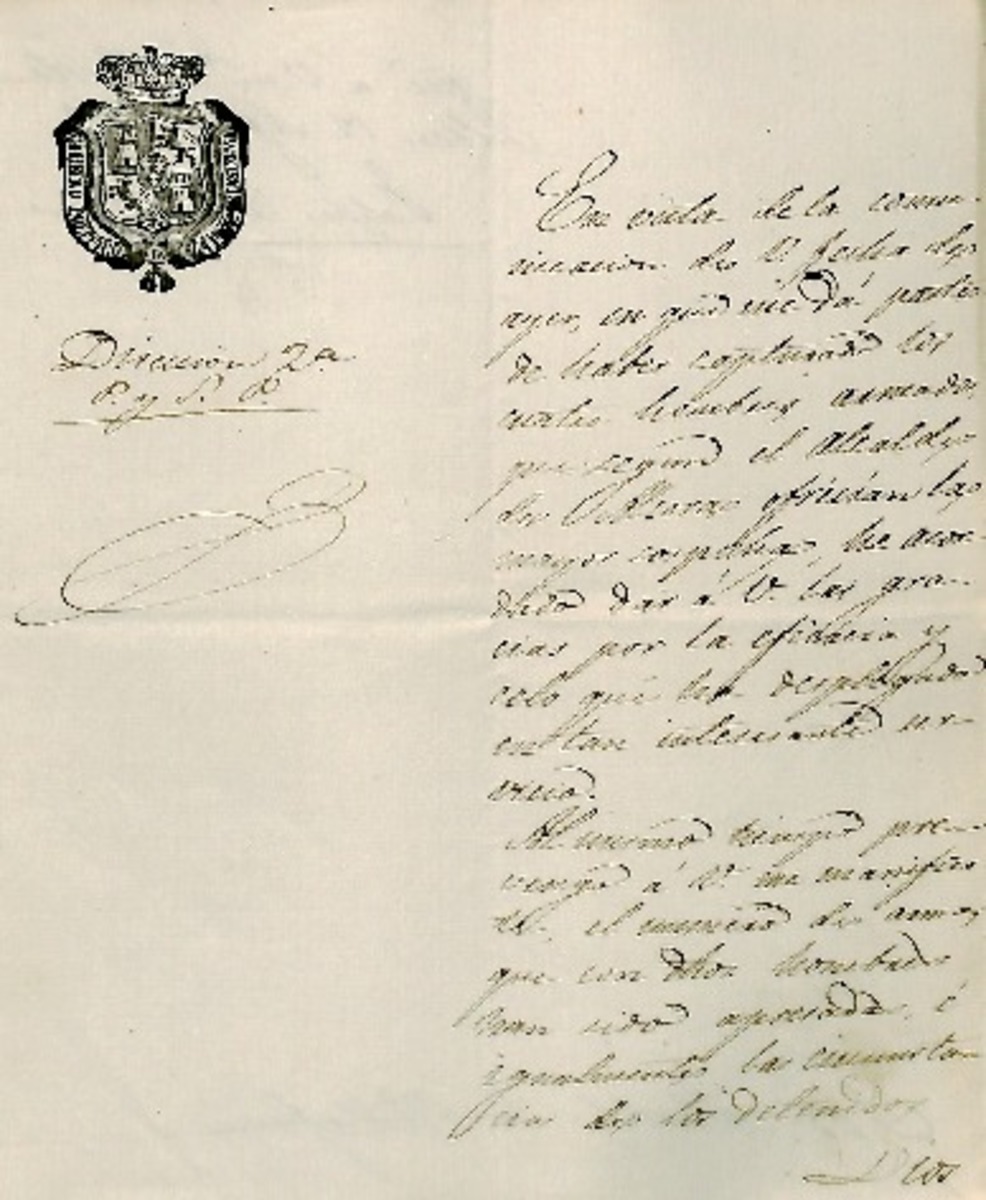 Direccion 2a
P. y S. P.
En vista de la comu-
nicacion de V. fecha de
ayer, en que me dá parte
de haber capturado los
cuatro hombres armados
que segun el Alcalde
de ofrecian las
mayor sospechas, he acor-
dado dar á V. las gra-
cias por la eficacia y
celo que ha desplegado
en tan interesante ser-
vicio.
Al mismo tiempo pre-
vengo á V. me manifies
te el numero de armas
que con dhos hombres
han sido apresadas, é
igualmente las circunstan
cias de los detenidos
Dios